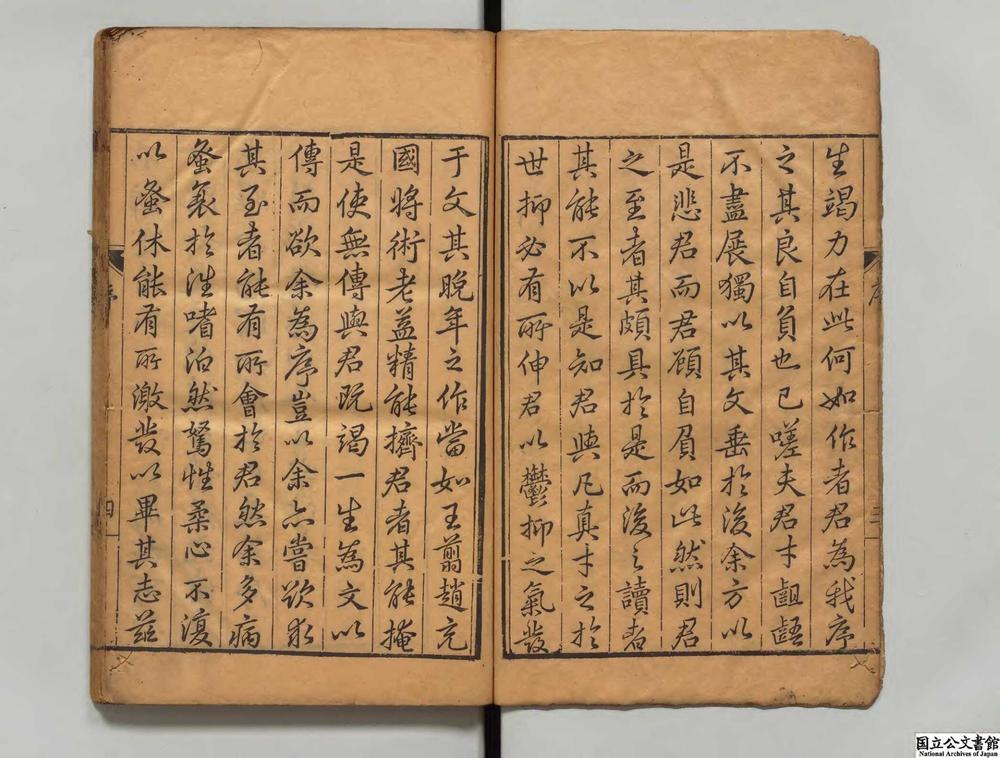 生竭力在此何如作者君為我序
之其良自負也已嗟夫君才齟齬
不盡展獨以其文垂於後余方以
是悲君而君顧自負如此然則君
之至者其頗具於是而後之讀者
其能不以是知君與凡真才之於
世抑必有所伸君以鬱抑之氣發
于文其晚年之作當如王翦趙充
國將術老益精能擠君者其能掩
是使無傳與君既竭一生為文以
傳而欲余為序豈以余亦嘗欲求
其至者能有所會於君然余多病
蚤衰於世嗜泊然駑性柔心不復
以蚤休能有所激發以畢其志茲
序
三
四
国立公文書館
National Archives of Japan